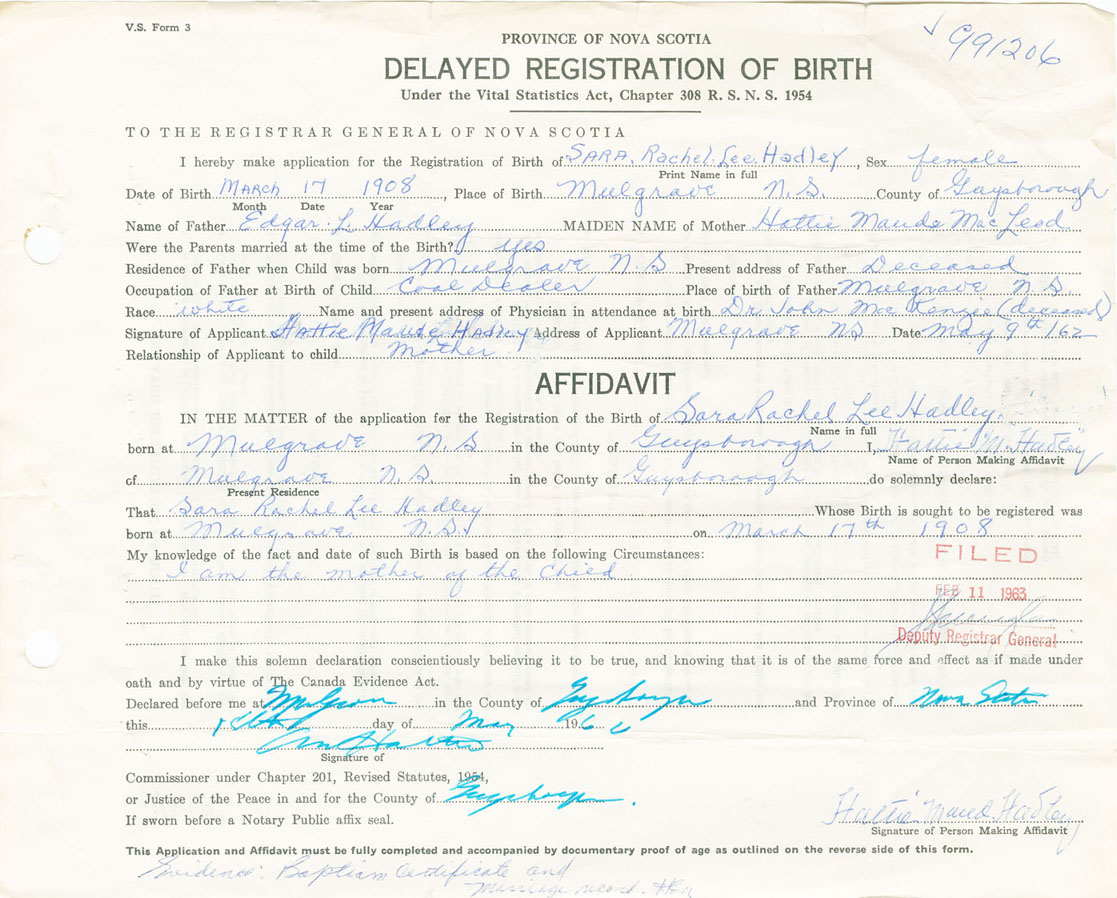 V.S. Form 3
991206
PROVINCE OF NOVA SCOTIA
DELAYED REGISTRATION OF BIRTH
Under the Vital Statistics Act, Chapter 308 R. S. N. S. 1954
TO THE REGISTRAR GENERAL OF NOVA SCOTIA
I hereby make application for the Registration of Birth of SARA. Rachel Lee Hadley, Sex female
Print Name in full
Date of Birth MARCH 17 1908, Place of Birth Mulgrave N.S. County of Guysborough
Month Date Year
Name of Father Edgar L Hadley MAIDEN NAME of Mother Hattie Maude MacLeod
Were the Parents married at the time of the Birth? yes
Residence of Father when Child was born Mulgrave N.S Present address of Father Deceased
Occupation of Father at Birth of Child Coal Dealer Place of birth of Father Mulgrave N S.
Race white Name and present address of Physician in attendance at birth Dr. John MacKenzie (deceased)
Signature of Applicant Hattie Maude Hadley Address of Applicant Mulgrave NS Date May 9th/62
Relationship of Applicant to child mother
AFFIDAVIT
IN THE MATTER of the application for the Registration of the Birth of Sara Rachel Lee Hadley
Name in full
born at Mulgrave N.S in the County of Guysborough I, Hattie M. Hadley
Name of Person Making Affidavit
of Mulgrave N.S. in the County of Guysborough do solemnly declare:
Present Residence
That Sara Rachel Lee Hadley Whose Birth is sought to be registered was
born at Mulgrave N.S. on March 17th 1908
My knowledge of the fact and date of such Birth is based on the following Circumstances:
I am the mother of the Child
FILED
FEB 11 1963
Deputy Registrar General
I make this solemn declaration conscientiously believing it to be true, and knowing that it is of the same force and effect as if made under
oath and by virtue of The Canada Evidence Act.
Declared before me at Mulgrave in the County of Guysboro and Province of Nova Scotia
this day of May 196
Signature of
Commissioner under Chapter 201, Revised Statutes, 1954,
or Justice of the Peace in and for the County of Guysboro.
If sworn before a Notary Public affix seal.
Hattie Maud Hadley
Signature of Person Making Affidavit
This Application and Affidavit must be fully completed and accompanied by documentary proof of age as outlined on the reverse side of this form.
Evidence: Baptism Certificate and
marriage record.